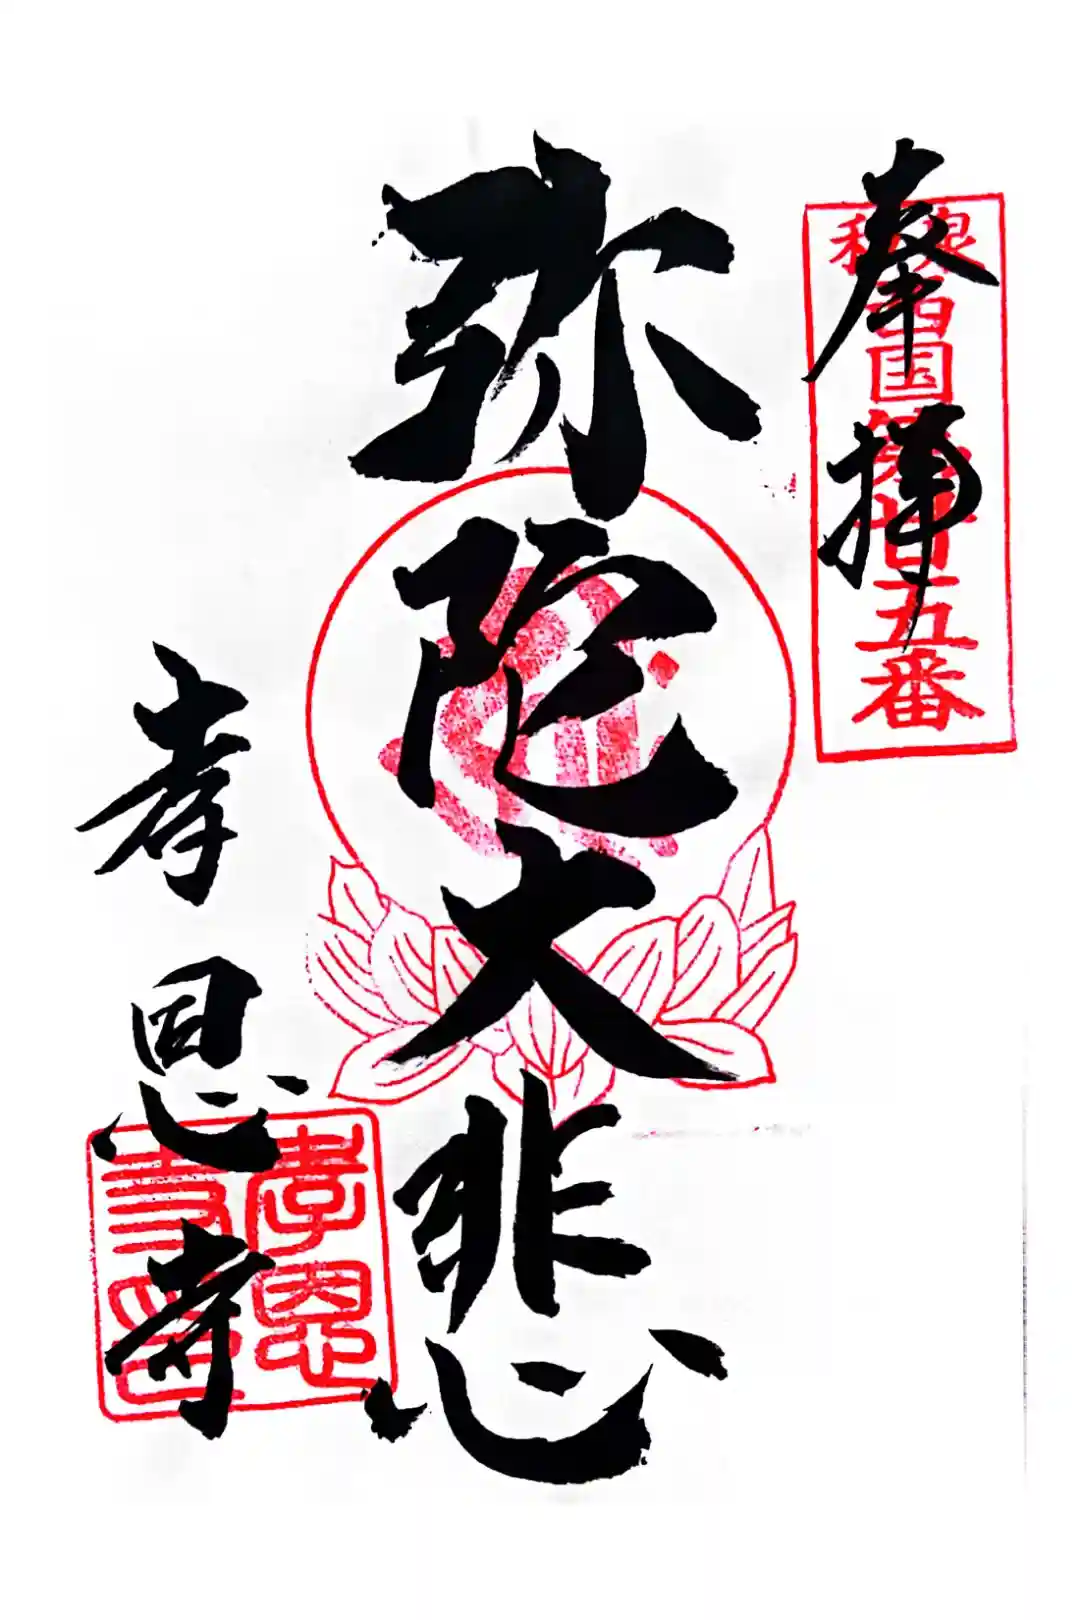 奉拝
和泉
西国第廿五番
弥陀大悲
孝恩寺
孝恩
寺印